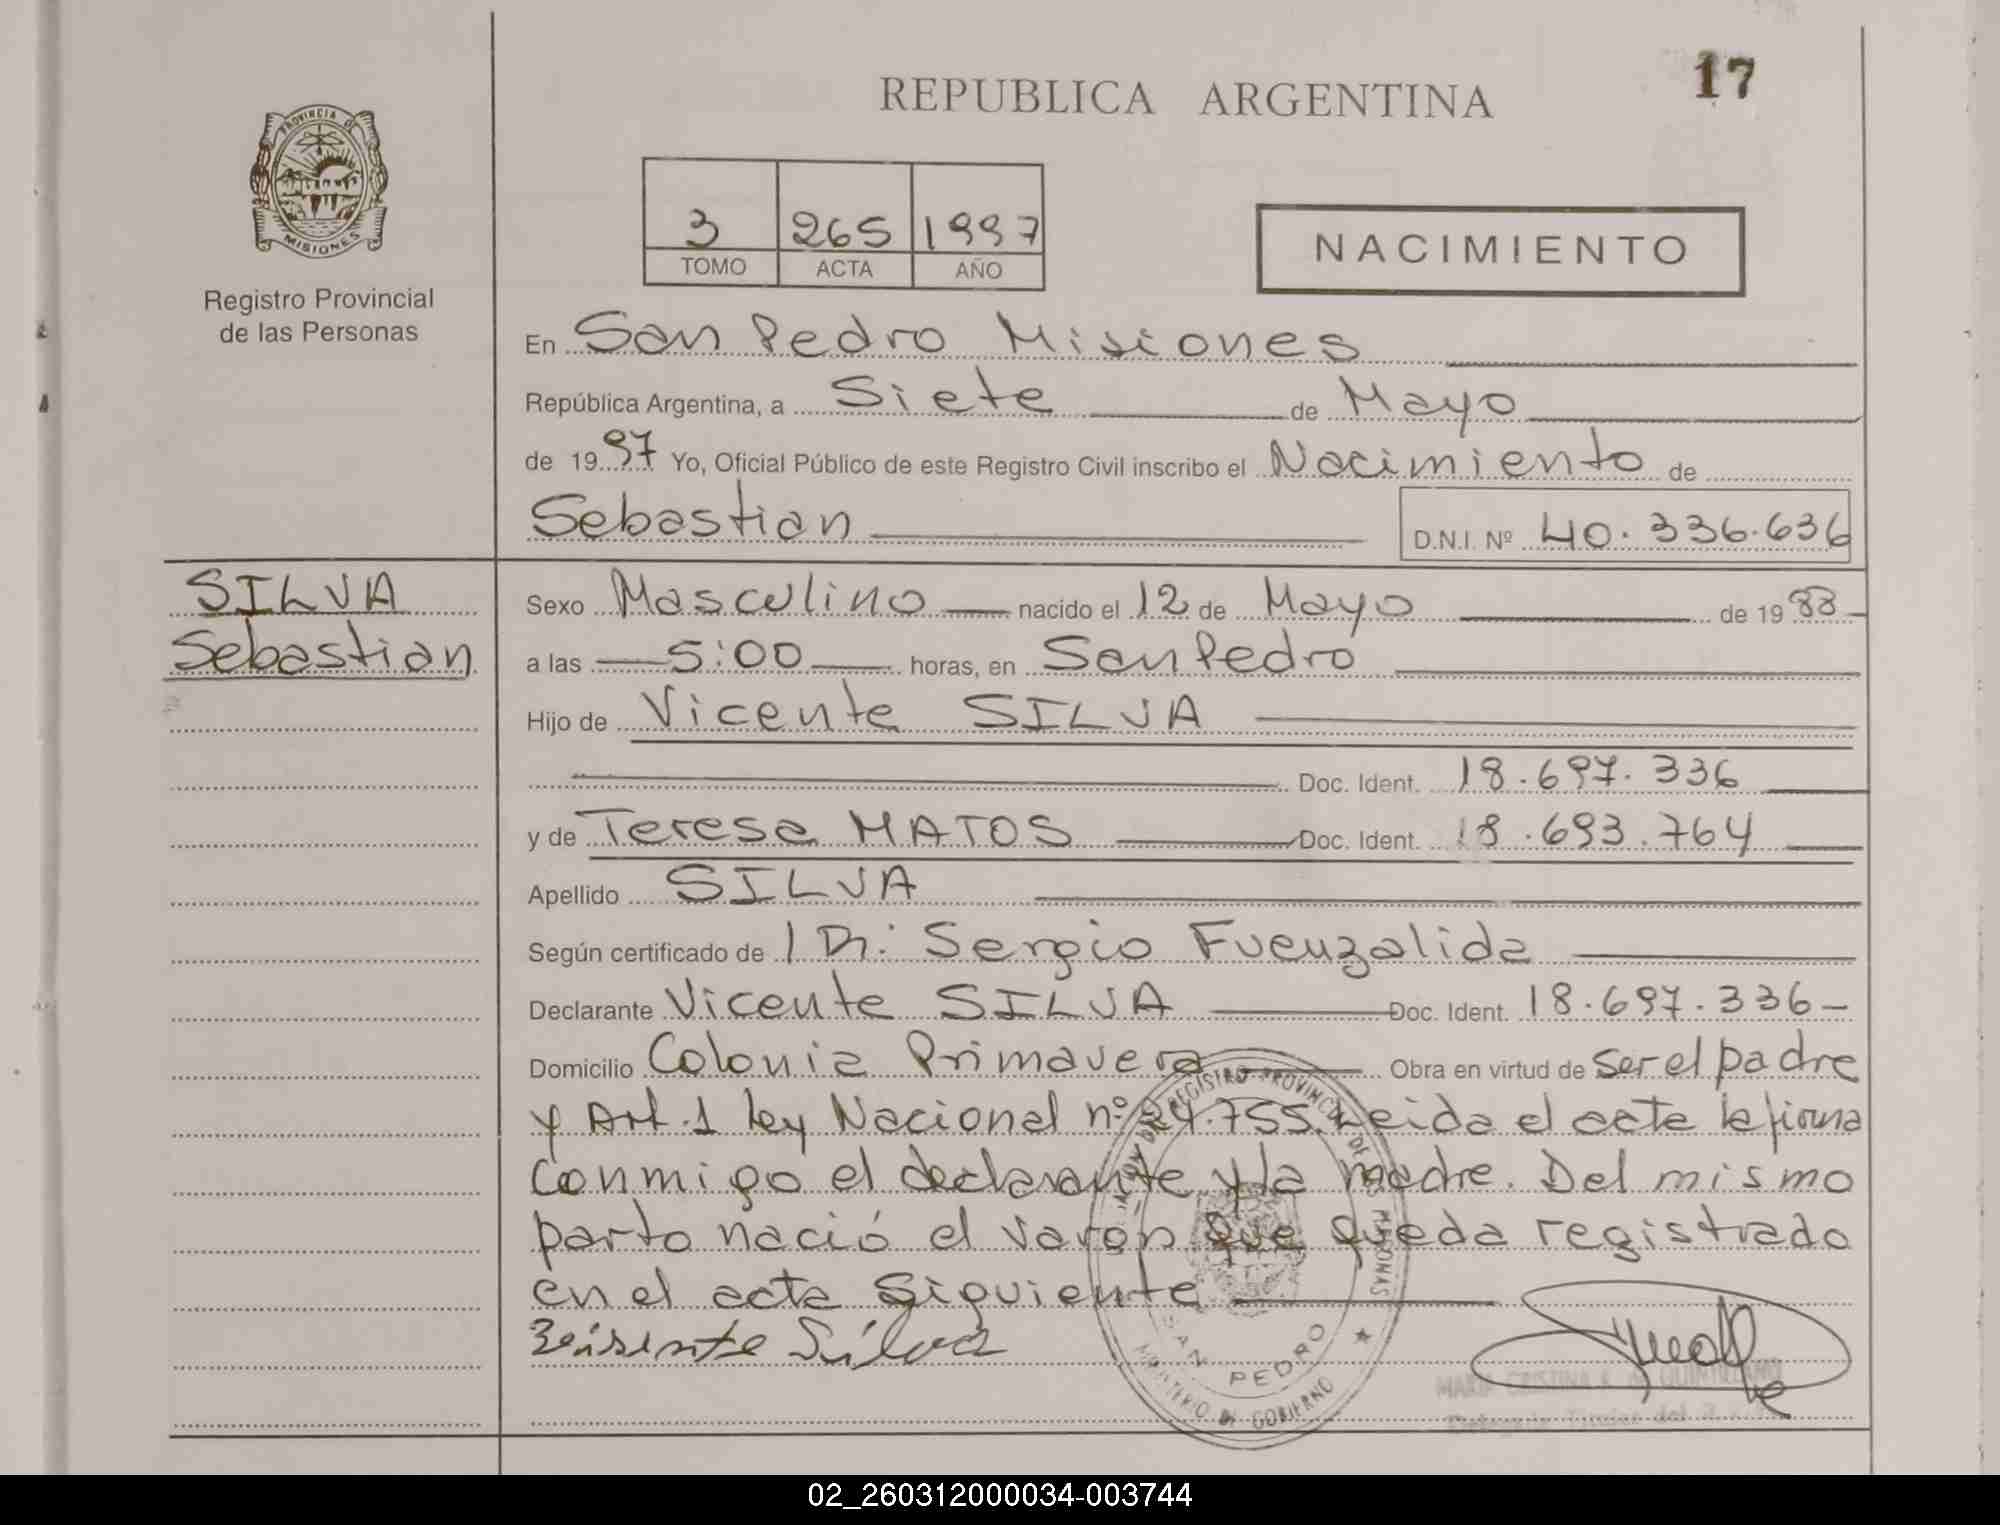 17
REPUBLICA ARGENTINA
PROVINCIA DE
MISIONES
Registro Provincial
de las Personas
3 265 1997
TOMO ACTA AÑO
NACIMIENTO
En San Pedro Misiones
República Argentina, a Siete de Mayo
de 1997 Yo, Oficial Público de este Registro Civil inscribo el Nacimiento de
Sebastian D.N.I. Nº 40.336.636
SILVA
Sebastian
Sexo Masculino nacido el 12 de Mayo de 1988
a las 5:00 horas, en San Pedro
Hijo de Vicente SILVA
Doc. Ident. 18.697.336
y de Teresa MATOS Doc. Ident. 18.693.764
Apellido SILVA
Según certificado de Dr: Sergio Fuenzalida
Declarante Vicente SILVA Doc. Ident. 18.697.336
Domicilio Colonia Primavera Obra en virtud de ser el padre
y Art. 1 Ley Nacional nº 24.755. Leida el acta la firma
conmigo el declarante y la madre. Del mismo
parto nació el varon que queda registrado
en el acta siguiente
Silva
REGISTRO PROVINCIAL DE LAS PERSONAS
SAN PEDRO
MINISTERIO DE GOBIERNO
MARIA CRISTINA
02_260312000034-003744